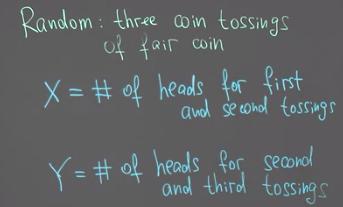 Random: three coin tossings
of fair coin
X = # of heads for first
and second tossings
Y = # of heads for second
and third tossings